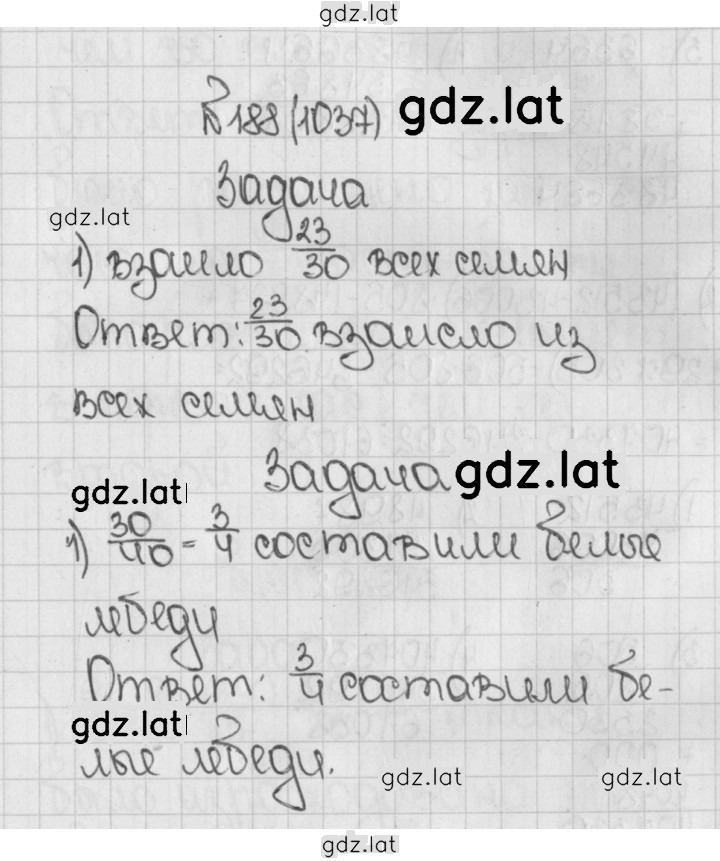 gdz.lat
№188 (1037) gdz.lat
Задача
gdz.lat
1) взошло 23/30 всех семян
Ответ: 23/30 взошло из
всех семян
Задача gdz.lat
gdz.lat
1) 30/40 = 3/4 составили белые
лебеди
Ответ: 3/4 составили бе-
gdz.lat
лые лебеди.
gdz.lat gdz.lat
gdz.lat